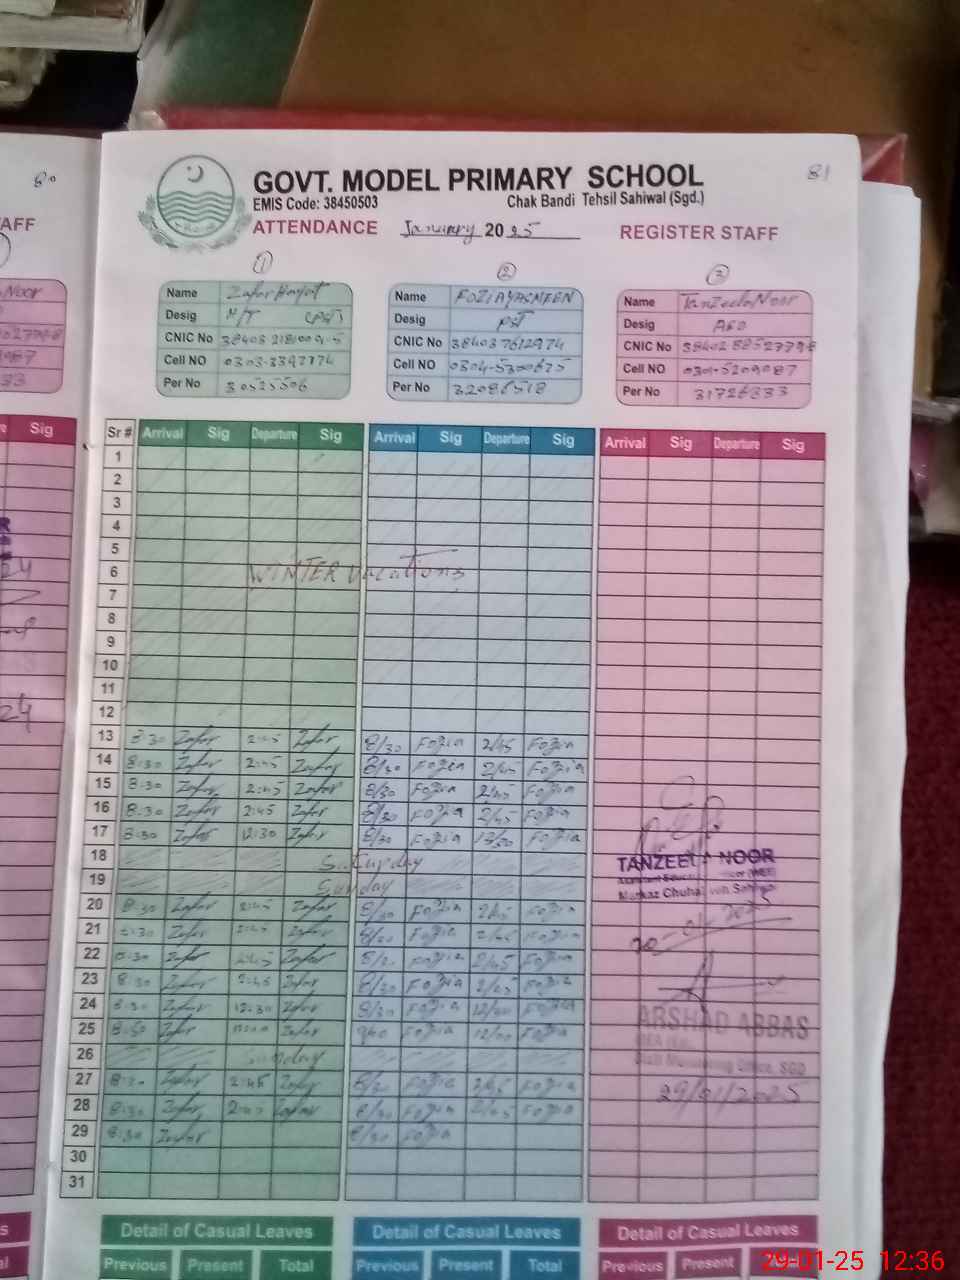 80
81
GOVT. MODEL PRIMARY SCHOOL
EMIS Code: 38450503 Chak Bandi Tehsil Sahiwal (Sgd.)
ATTENDANCE January 2025 REGISTER STAFF
AFF
1 2 3
Name Zafar Hayat Name FOZIA YASMEEN Name Tanzeela Noor
Desig Desig PST Desig AEO
CNIC No CNIC No 384037612974 CNIC No
Cell NO 0303-3392774 Cell NO 0304-5300675 Cell NO 0301-5209087
Per No 30525506 Per No 32086518 Per No 31726333
Sr # Arrival Sig Departure Sig Arrival Sig Departure Sig Arrival Sig Departure Sig
Sig
1
2
3
4
5
6 WINTER Vacations
7
8
9
10
11
12
13 8:30 Zafar 2:45 Zafar 8/30 Fozia 2/45 Fozia
14 8:30 Zafar 2:45 Zafar 8/30 Fozia 2/45 Fozia
15 8:30 Zafar 2:45 Zafar 8/30 Fozia 2/45 Fozia
16 8:30 Zafar 2:45 Zafar 8/30 Fozia 2/45 Fozia
17 8:30 Zafar 12:30 Zafar 8/30 Fozia Fozia
18 Saturday
TANZEELA NOOR
19 Sunday
20 8:30 Zafar 2:45 Zafar 8/30 Fozia 2/45 Fozia
20-01-2025
21 8:30 Zafar 2:45 Zafar 8/30 Fozia 2/45 Fozia
22 8:30 Zafar 2:45 Zafar 8/30 Fozia 2/45 Fozia
23 8:30 Zafar 2:45 Zafar 8/30 Fozia 2/45 Fozia
24 8:30 Zafar 12:30 Zafar 8/30 Fozia Fozia
ARSHAD ABBAS
25 8:30 Zafar Zafar Fozia Fozia
26 Sunday
27 8:30 Zafar 2:45 Zafar 8/30 Fozia 2/45 Fozia
29/01/2025
28 8:30 Zafar 2:45 Zafar 8/30 Fozia 2/45 Fozia
29 8:30 Zafar 8/30 Fozia
30
31
Detail of Casual Leaves Detail of Casual Leaves Detail of Casual Leaves
Previous Present Total Previous Present Total Previous Present
29-01-25 12:36